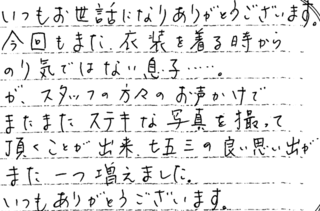 いつもお世話になりありがとうございます。
今回もまた、衣装を着る時から
のり気ではない息子……。
が、スタッフの方々のお声かけで
またまたステキな写真を撮って
頂くことが出来、七五三の良い思い出が
また一つ増えました。
いつもありがとうございます。